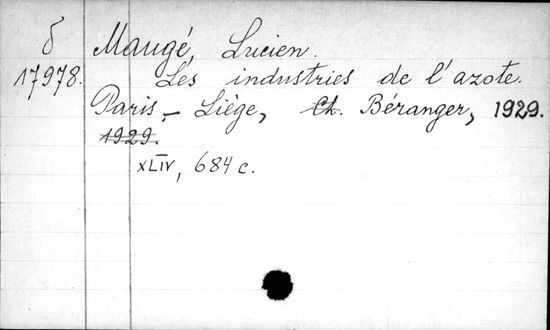 δ Maugé, Lucien.
17978. Les industries de l'azote.
Paris. - Liège, Ch. Béranger, 1929.
1929.
XLIV, 684 c.